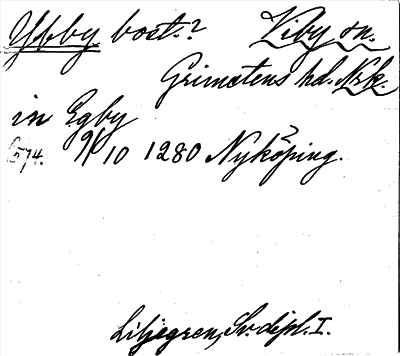 Ybby bost.? Viby sn.
Grimstens hd. Nrk.
in Egby
574. 9/10 1280 Nyköping.
Liljegren, Sv. dipl. I.